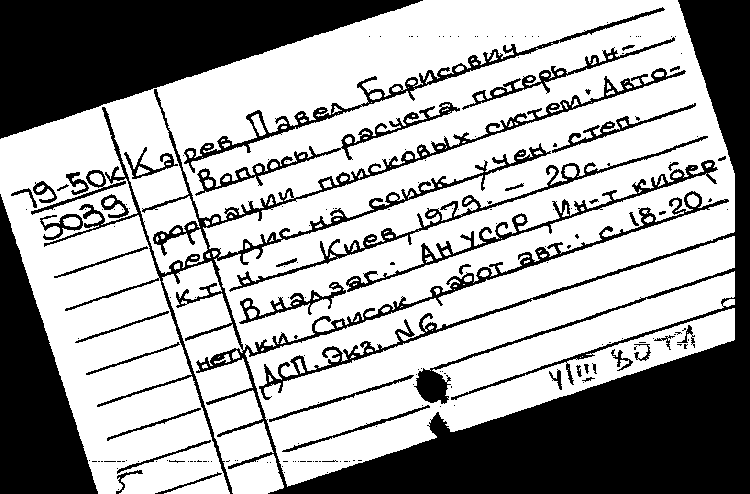 79-50к
5039
Карев, Павел Борисович
Вопросы расчета потерь ин-
формации поисковых систем: Авто-
реф. дис. на соиск. учен. степ.
к.т. н. – Киев, 1979. – 20с.
В надзаг.: АН УССР, Ин-т кибер-
нетики. Список работ авт.: с. 18-20.
ДСП. Экз. N6.
VIII 80 ТА
5